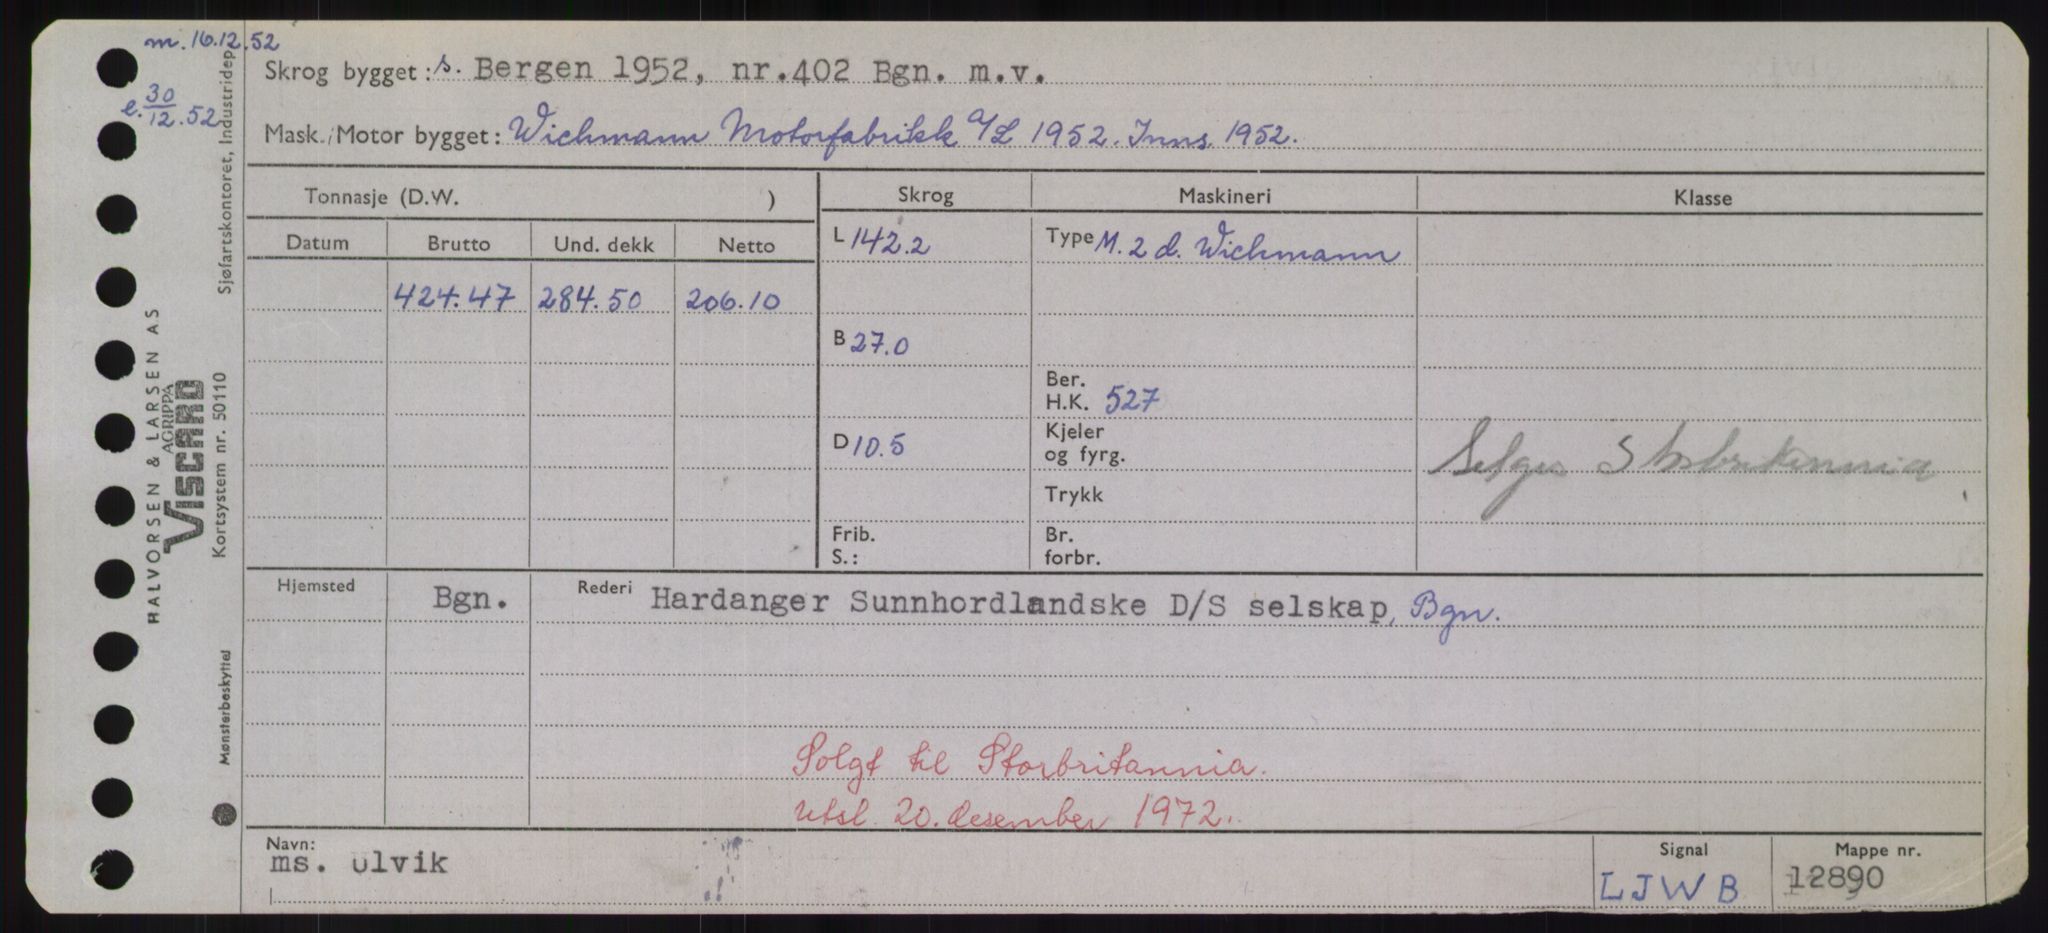 m. 16.12.52
e. 30/12.52
Skrog bygget: s. Bergen 1952, nr.402 Bgn. m.v.
Mask./Motor bygget: Wichmann Motorfabrikk A/L 1952. Inns. 1952.
Tonnasje (D.W. )
Skrog
Maskineri
Klasse
Datum
Brutto
Und. dekk
Netto
L 142.2
Type M. 2 d. Wichmann
424.47
284.50
206.10
B 27.0
Ber.
H.K. 527
D 10.5
Kjeler
og fyrg.
Selges Storbritannia
Trykk
Frib.
S.:
Br.
forbr.
Hjemsted
Bgn.
Rederi
Hardanger Sunnhordlandske D/S selskap, Bgn.
Solgt til Storbritannia.
utsl. 20. desember 1972.
Navn:
ms. Ulvik
Signal
LJWB
Mappe nr.
12890
HALVORSEN & LARSEN AS
AGRIPPA
VISCARD
Sjøfartskontoret, Industridep
Kortsystem nr. 50110
Mønsterbeskyttet